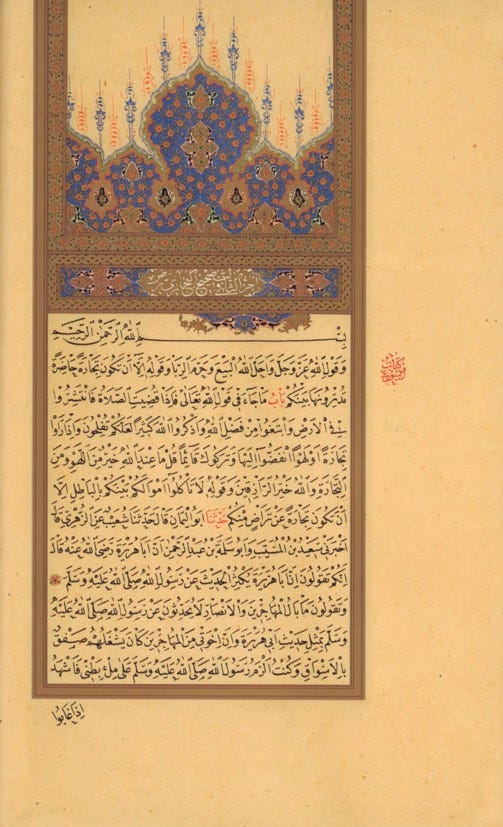 الجزء الثاني من صحيح البخاري
بسم الله الرحمن الرحيم
وَقَوْلِ اللهِ عَزَّ وَجَلَّ وَاَحَلَّ اللهُ الْبَيْعَ وَحَرَّمَ الرِّبَا وَقَوْلِهِ اِلَّا اَنْ تَكُونَ تِجَارَةً حَاضِرَةً
تُدِيرُونَهَا بَيْنَكُمْ بَابُ مَا جَاءَ فِي قَوْلِ اللهِ تَعَالَى فَاِذَا قُضِيَتِ الصَّلَاةُ فَانْتَشِرُوا
فِي الْاَرْضِ وَابْتَغُوا مِنْ فَضْلِ اللهِ وَاذْكُرُوا اللهَ كَثِيرًا لَعَلَّكُمْ تُفْلِحُونَ وَاِذَا رَاَوْا
تِجَارَةً اَوْ لَهْوًا انْفَضُّوا اِلَيْهَا وَتَرَكُوكَ قَائِمًا قُلْ مَا عِنْدَ اللهِ خَيْرٌ مِنَ اللَّهْوِ وَمِنَ
التِّجَارَةِ وَاللهُ خَيْرُ الرَّازِقِينَ وَقَوْلِهِ لَا تَأْكُلُوا اَمْوَالَكُمْ بَيْنَكُمْ بِالْبَاطِلِ اِلَّا
اَنْ تَكُونَ تِجَارَةً عَنْ تَرَاضٍ مِنْكُمْ حَدَّثَنَا اَبُو الْيَمَانِ قَالَ حَدَّثَنَا شُعَيْبٌ عَنِ الزُّهْرِيِّ قَالَ
اَخْبَرَنِي سَعِيدُ بْنُ الْمُسَيَّبِ وَاَبُو سَلَمَةَ بْنُ عَبْدِ الرَّحْمٰنِ اَنَّ اَبَا هُرَيْرَةَ رَضِيَ اللهُ عَنْهُ قَالَ
اِنَّكُمْ تَقُولُونَ اِنَّ اَبَا هُرَيْرَةَ يُكْثِرُ الْحَدِيثَ عَنْ رَسُولِ اللهِ صَلَّى اللهُ عَلَيْهِ وَسَلَّمَ
وَتَقُولُونَ مَا بَالُ الْمُهَاجِرِينَ وَالْاَنْصَارِ لَا يُحَدِّثُونَ عَنْ رَسُولِ اللهِ صَلَّى اللهُ عَلَيْهِ
وَسَلَّمَ بِمِثْلِ حَدِيثِ اَبِي هُرَيْرَةَ وَاِنَّ اِخْوَتِي مِنَ الْمُهَاجِرِينَ كَانَ يَشْغَلُهُمْ صَفْقٌ
بِالْاَسْوَاقِ وَكُنْتُ اَلْزَمُ رَسُولَ اللهِ صَلَّى اللهُ عَلَيْهِ وَسَلَّمَ عَلَى مِلْءِ بَطْنِي فَاَشْهَدُ
اِذَا غَابُوا
كتاب البيوع